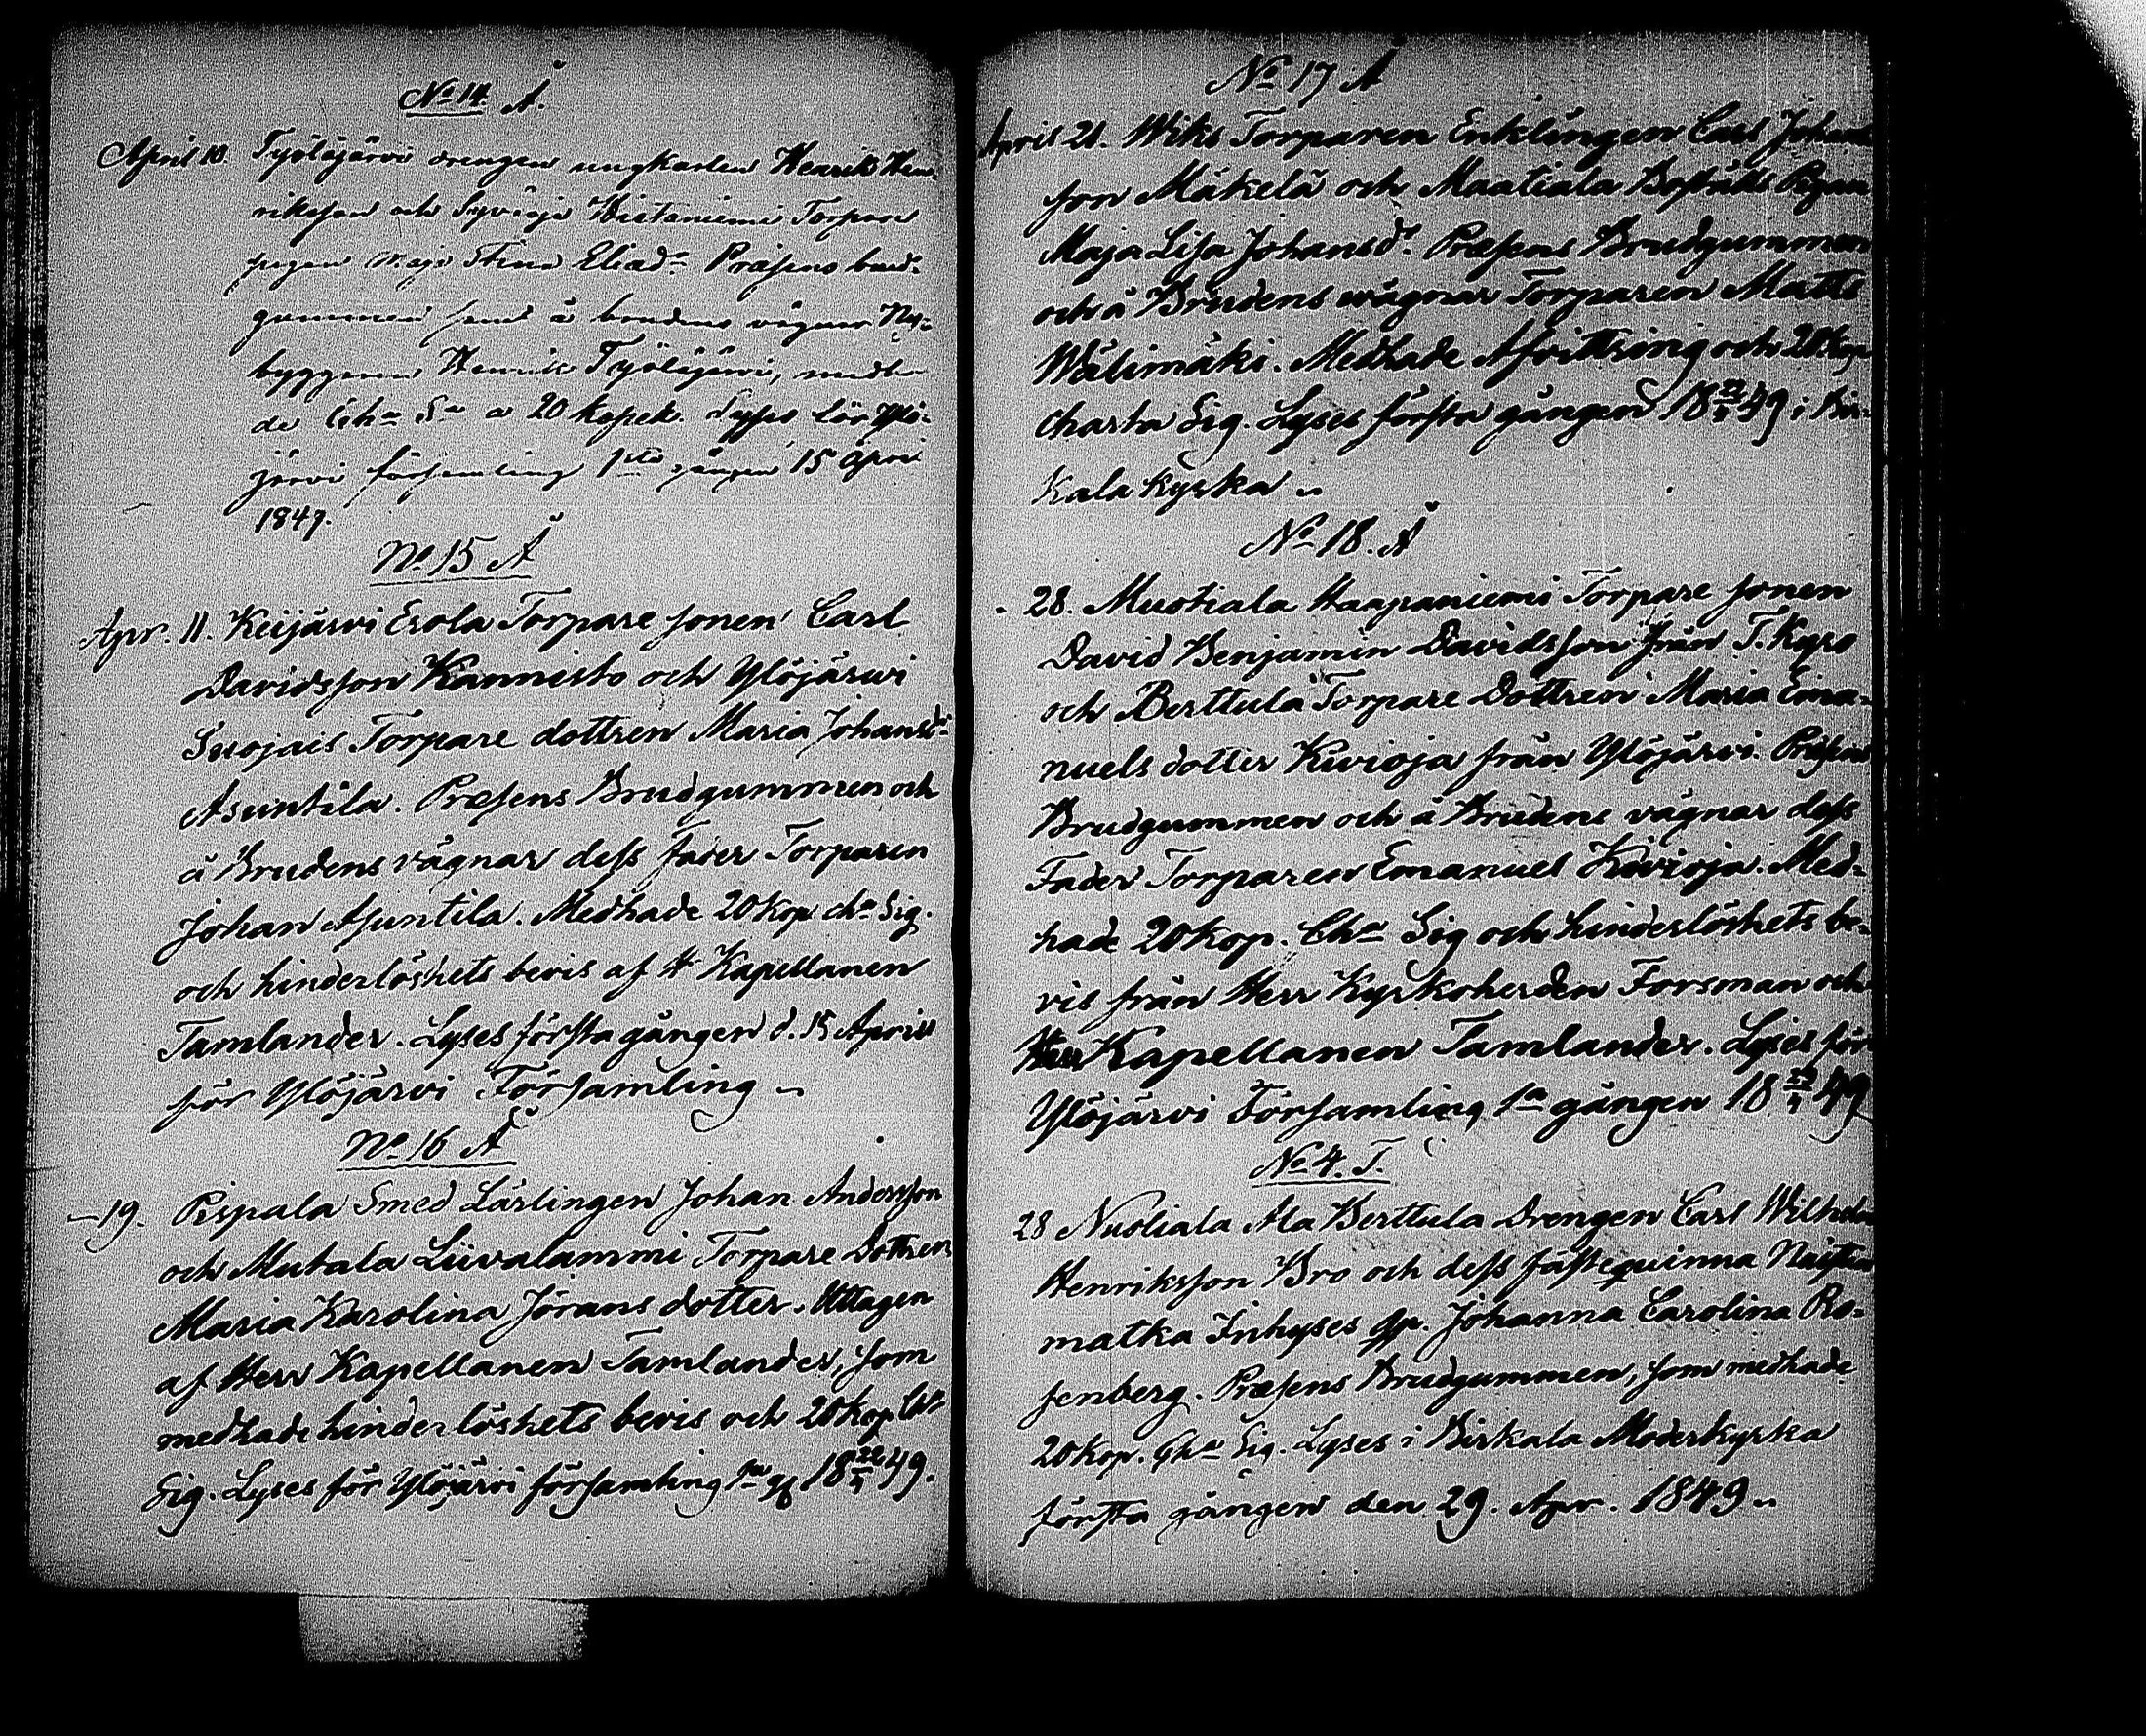 No 14. Å.
April 10. Työläjärvi drengen ungkarlen Henrik Hen-
riksson och Torpare
pigen Maja Stina Eliad:r Præsens brud-
gummen samt å brudens vägnar Ny-
byggaren Henric Työläjärvi, medha-
de Cha Sa a 20 kopek. Lyses för Ylö-
järvi församling 1sta gången 15 April
1849.
No 15 Å
Apr. 11. Keijärvi Erola Torpare sonen Carl
Davidsson Kannisto och Ylöjärwi
Torpare dottren Maria Johansd:r
Asuntila. Præsens Brudgummen och
å Brudens vägnar dess Fader Torparen
Johan Asuntila. Medhade 20 kop cha Sig.
och hinderlöshets bevis af H Kapellanen
Tamlander. Lyses första gången d. 15 April
för Ylöjärvi Församling
No 16 Å
— 19. Pispala Smed Lärlingen Johan Andersson
och Mutala Liivalammi Torpare Dottren
Maria Karolina Jörans dotter. Uttagen
af Herr Kapellanen Tamlander, som
medhade hinderlöshets bevis och 20 kop Cha
Sig. Lyses för Ylöjärvi församling 1a gg 18 22/4 49.
No 17 Å
April 21. Wiks Torparen Enklingen Carl Johans
son Mäkelä och Maatiala Bosräts Pigan
Maja Lisa Johansd:r. Præsens Brudgumman
och å Brudens wägnar Torparen Matts
Wälimäki. Medhade Afvittring och 20 kop
charta Sig. Lyses första gången 18 22/4 49 i Bir-
kala kyrka
No 18. Å
28. Mustiala Haapaniemi Torpare sonen
David Benjamin Davidsson från T. Kyro
och Berttula Torpare Dottren Maria Ema-
nuels dotter Kivioja från Ylöjärvi. Præsens
Brudgummen och å Brudens vägnar dess
Fader Torparen Emanuel Kivioja. Med-
hade 20 kop. Cha Sig och hinderlöshets be-
vis från Herr Kyrkoherden Forsman och
Herr Kapellanen Tamlander. Lyses för
Ylöjärvi Församling 1a gången 18 29/4 49
No 4. T.
28 Nuoliala Ala Berttula Drengen Carl Wilhelm
Henriksson Bro och dess fästeqvinna Naistin
matka Inhyses qp. Johanna Carolina Ro-
senberg. Præsens Brudgummen, som medhade
20 kop. Cha Sig. Lyses i Birkala Moderkyrka
första gången den 29. Apr. 1849